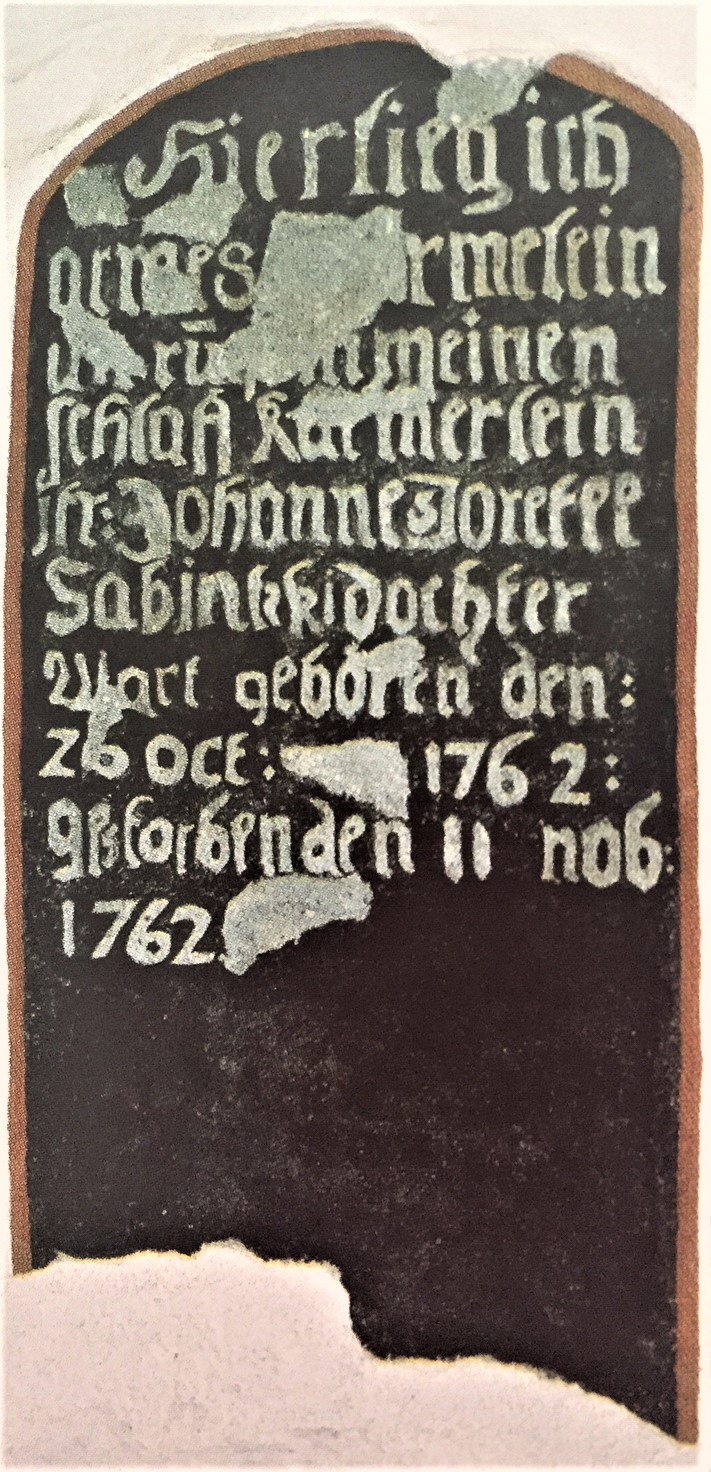 Hier lieg ich
armes rmelein
meinen
schlaff kamerlein
Johannes
Sabin dochter
Wart geboren den:
26 oct: 1762:
gestorben den 11 nob:
1762